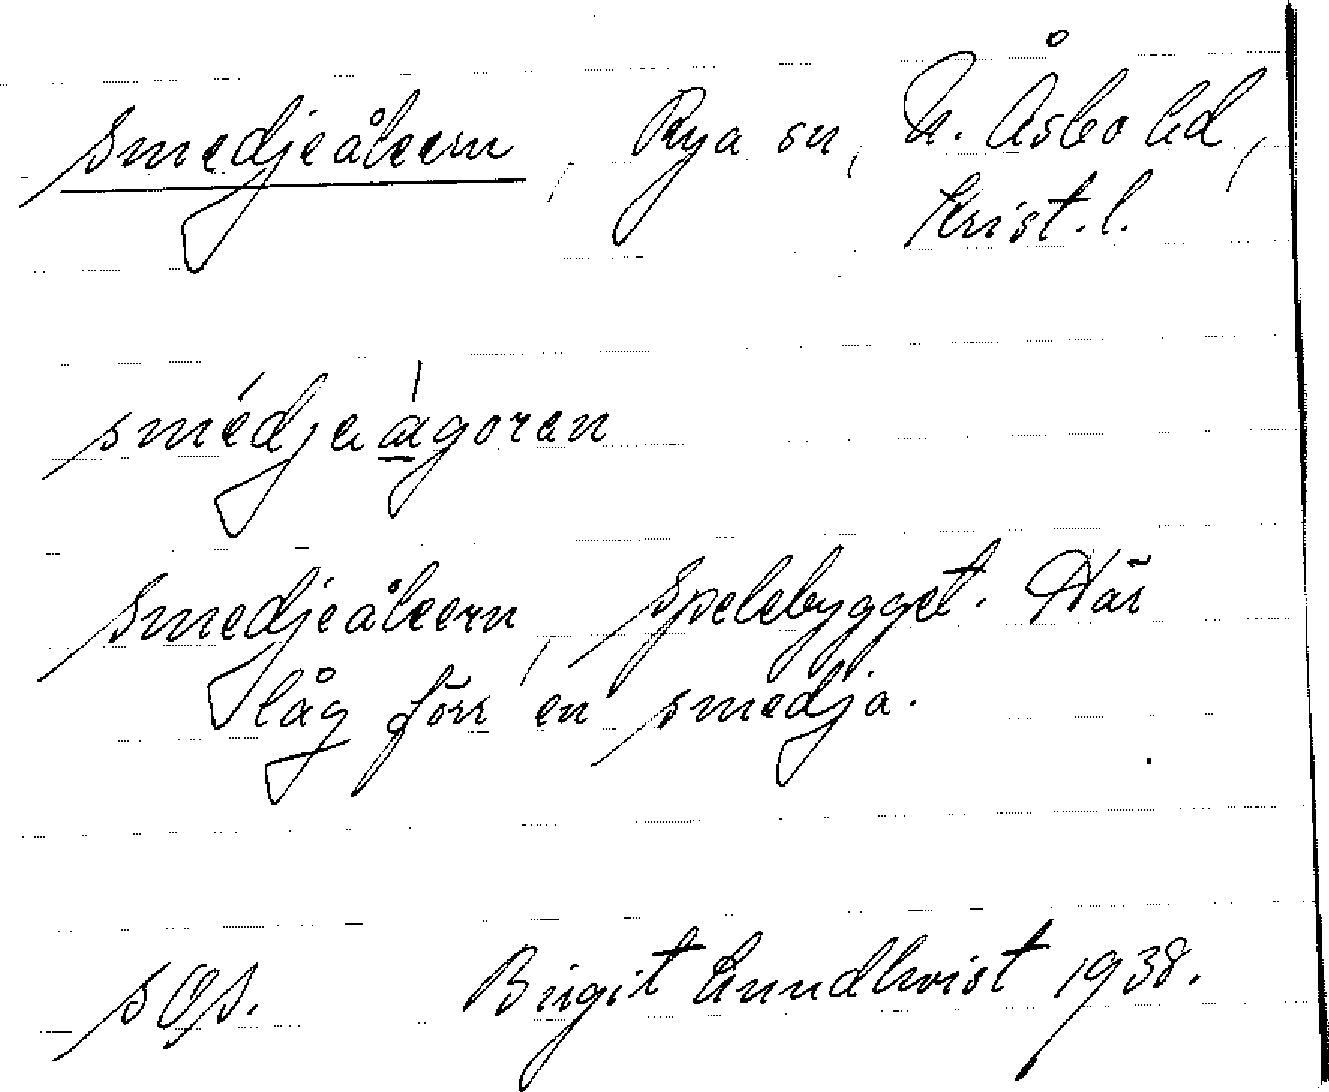 Smedjeåkern, Rya sn, N. Åsbo hd,
Krist. l.
smédjeågoren
Smedjeåkern, Spelebygget. Här
låg förr en smedja.
Birgit Lundkvist 1938.